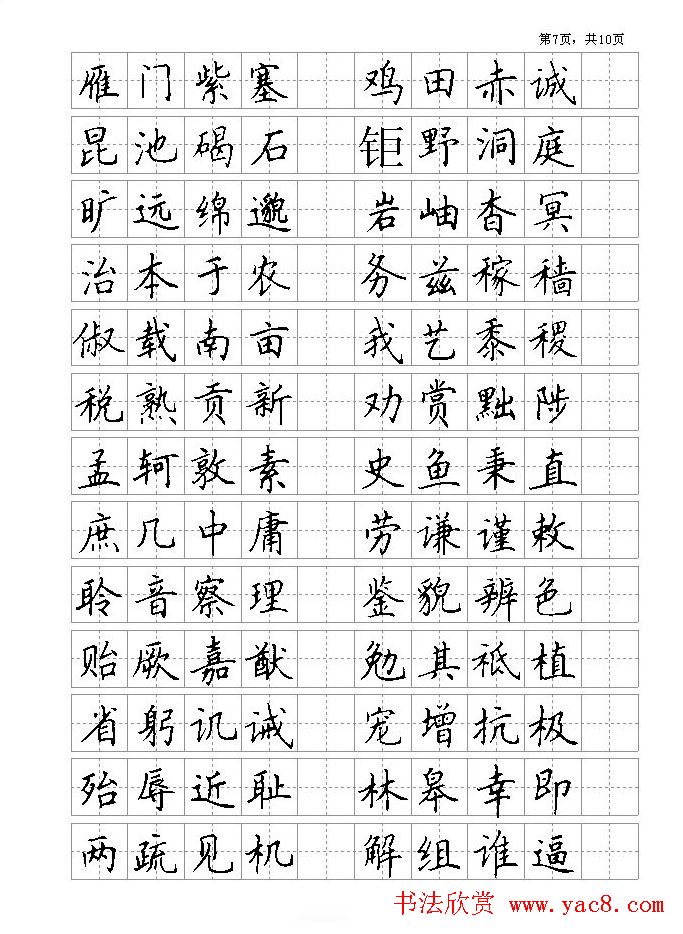 第7页，共10页
雁门紫塞 鸡田赤诚
昆池碣石 钜野洞庭
旷远绵邈 岩岫杳冥
治本于农 务兹稼穑
俶载南亩 我艺黍稷
税熟贡新 劝赏黜陟
孟轲敦素 史鱼秉直
庶几中庸 劳谦谨敕
聆音察理 鉴貌辨色
贻厥嘉猷 勉其祗植
省躬讥诫 宠增抗极
殆辱近耻 林皋幸即
两疏见机 解组谁逼
书法欣赏 www.yac8.com